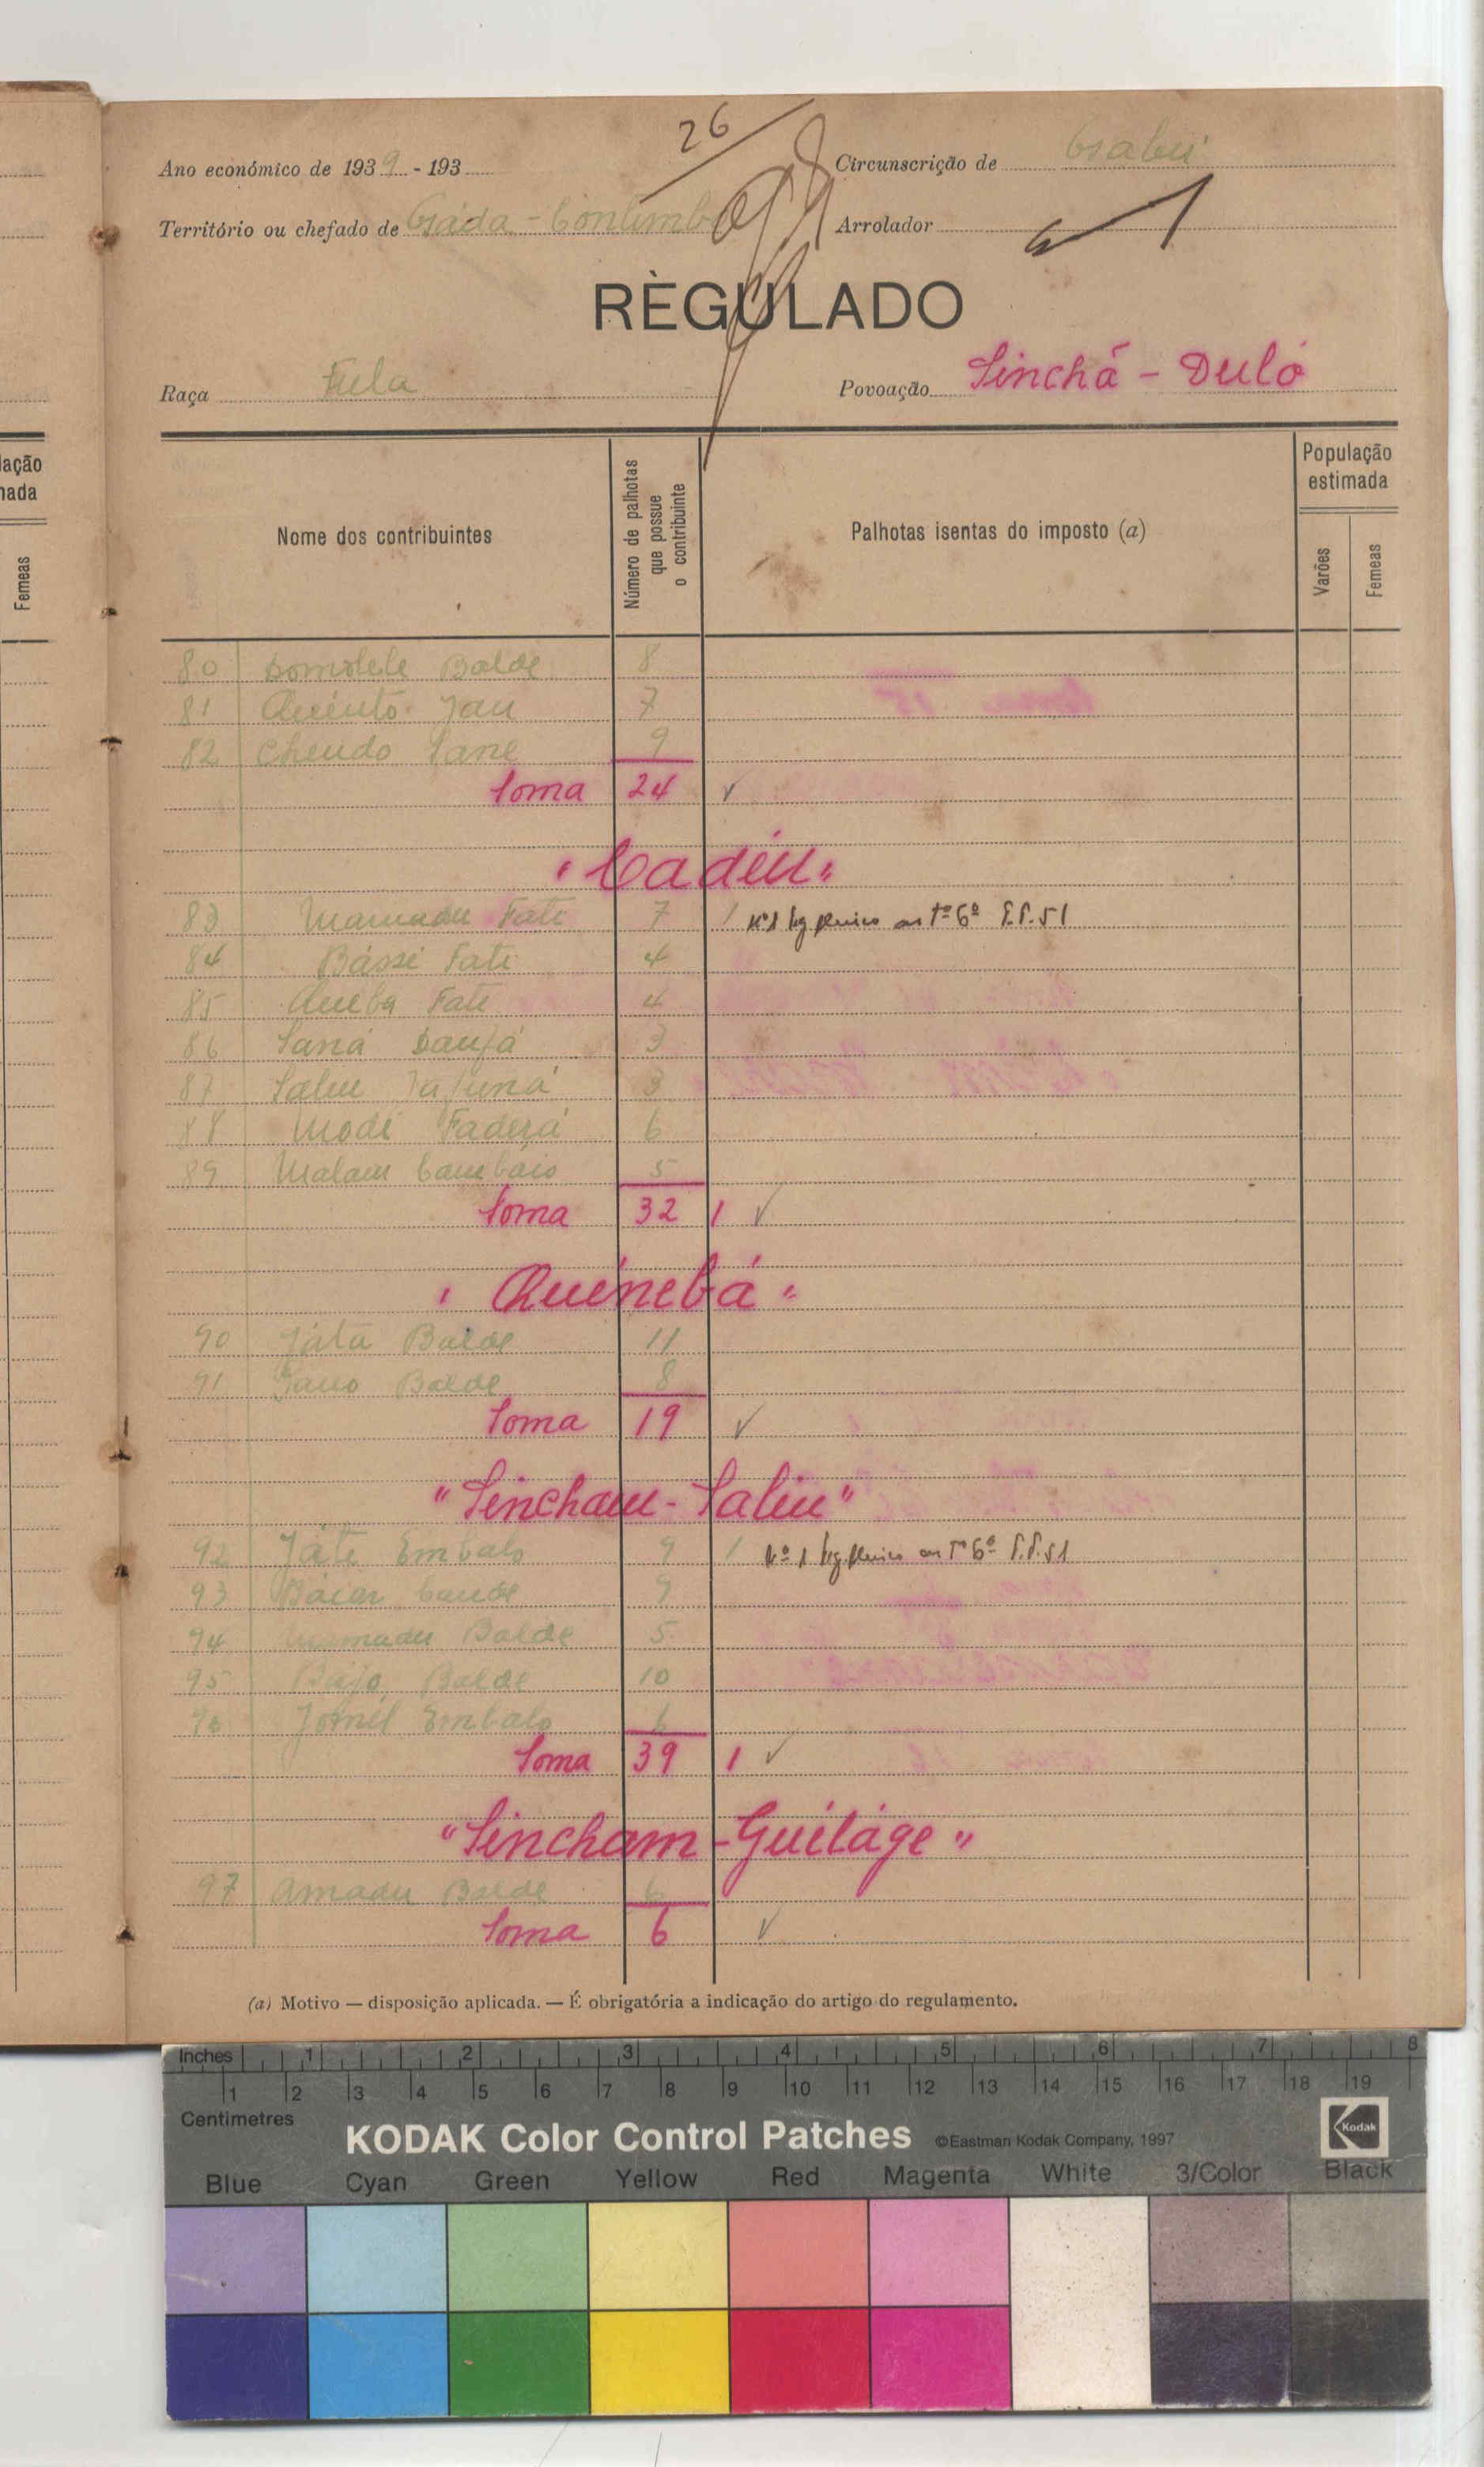 26
Ano económico de 1939 - 193
Circunscrição de Gabú
Território ou chefado de Gáda - Contumb
Arrolador
RÈGULADO
Raça Fula
Povoação Sinchã - Duló
lação
nada
Femeas
Nome dos contribuintes
Número de palhotas que possue o contribuinte
Palhotas isentas do imposto (a)
População estimada
Varões
Femeas
80 Balde 8
81 Quinto 7
82 Chendo Sane 9
Soma 24
"Cadeu"
83 Mamadu Fati 7 1 Nº 1 51
84 Bássi Fati 4
85 Queba Fati 4
86 Saná 3
87 Saliu 3
88 Modi Faderá 6
89 Malam Cambaio 5
Soma 32 1
"Quénebá"
90 Balde 11
91 Balde 8
Soma 19
"Sincham - Saliu"
92 Embalo 9 1 Nº 1 51
93 Bácar Cande 9
94 Mamadu Balde 5
95 Balde 10
96 Embalo 6
Soma 39 1
"Sincham - Guiláge"
97 Amadu Balde 6
Soma 6
(a) Motivo — disposição aplicada. — É obrigatória a indicação do artigo do regulamento.
Inches 1 2 3 4 5 6 7 8
1 2 3 4 5 6 7 8 9 10 11 12 13 14 15 16 17 18 19
Centimetres
KODAK Color Control Patches ©Eastman Kodak Company, 1997 Kodak
Blue Cyan Green Yellow Red Magenta White 3/Color Black